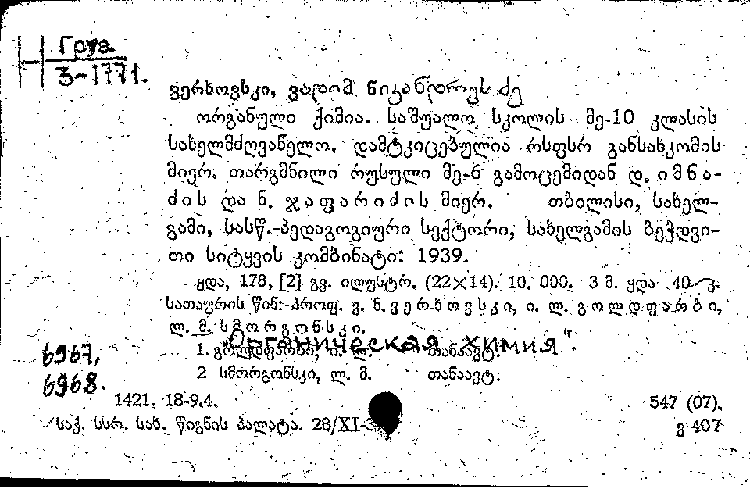 Груз
3-1771.
ვერხოვსკი, ვადიმ ნიკანდროვის ძე
ორგანული ქიმია. საშუალო სკოლის მე-10 კლასის
სახელმძღვანელო. დამტკიცებულია რსფსრ განსახკომის
მიერ. თარგმნილი რუსული მე-6 გამოცემიდან დ. იმნა-
ძის და ნ. ჯაფარიძის მიერ. თბილისი, სახელ-
გამი, სასწ.-პედაგოგიური სექტორი, სახელგამის ბეჭდვი-
თი სიტყვის კომბინატი: 1939.
ყდა, 178, [2] გვ. ილუსტრ. (22×14). 10. 000. 3 მ. ყდა 40 კ.
სათაურის წინ: პროფ. ვ. ნ. ვერხოვსკი, ი. ლ. გოლდფარბი,
ლ. მ. სმორგონსკი.
"Органическая химия".
6967, 1. გოლდფარბი, ი. ლ. თანაავტ.
6968. 2 სმორგონსკი, ლ. მ. თანაავტ.
1421. 18-9.4. 547 (07).
საქ. სსრ. სახ. წიგნის პალატა. 28/XI- ვ 407